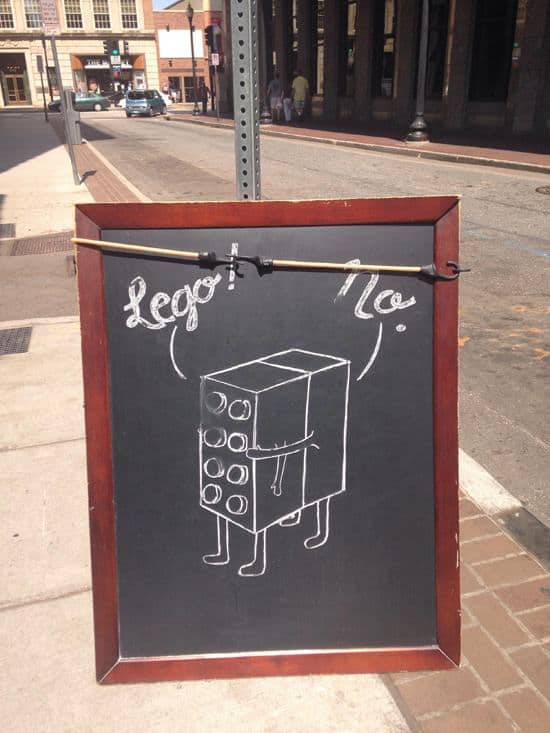 Lego!
No.